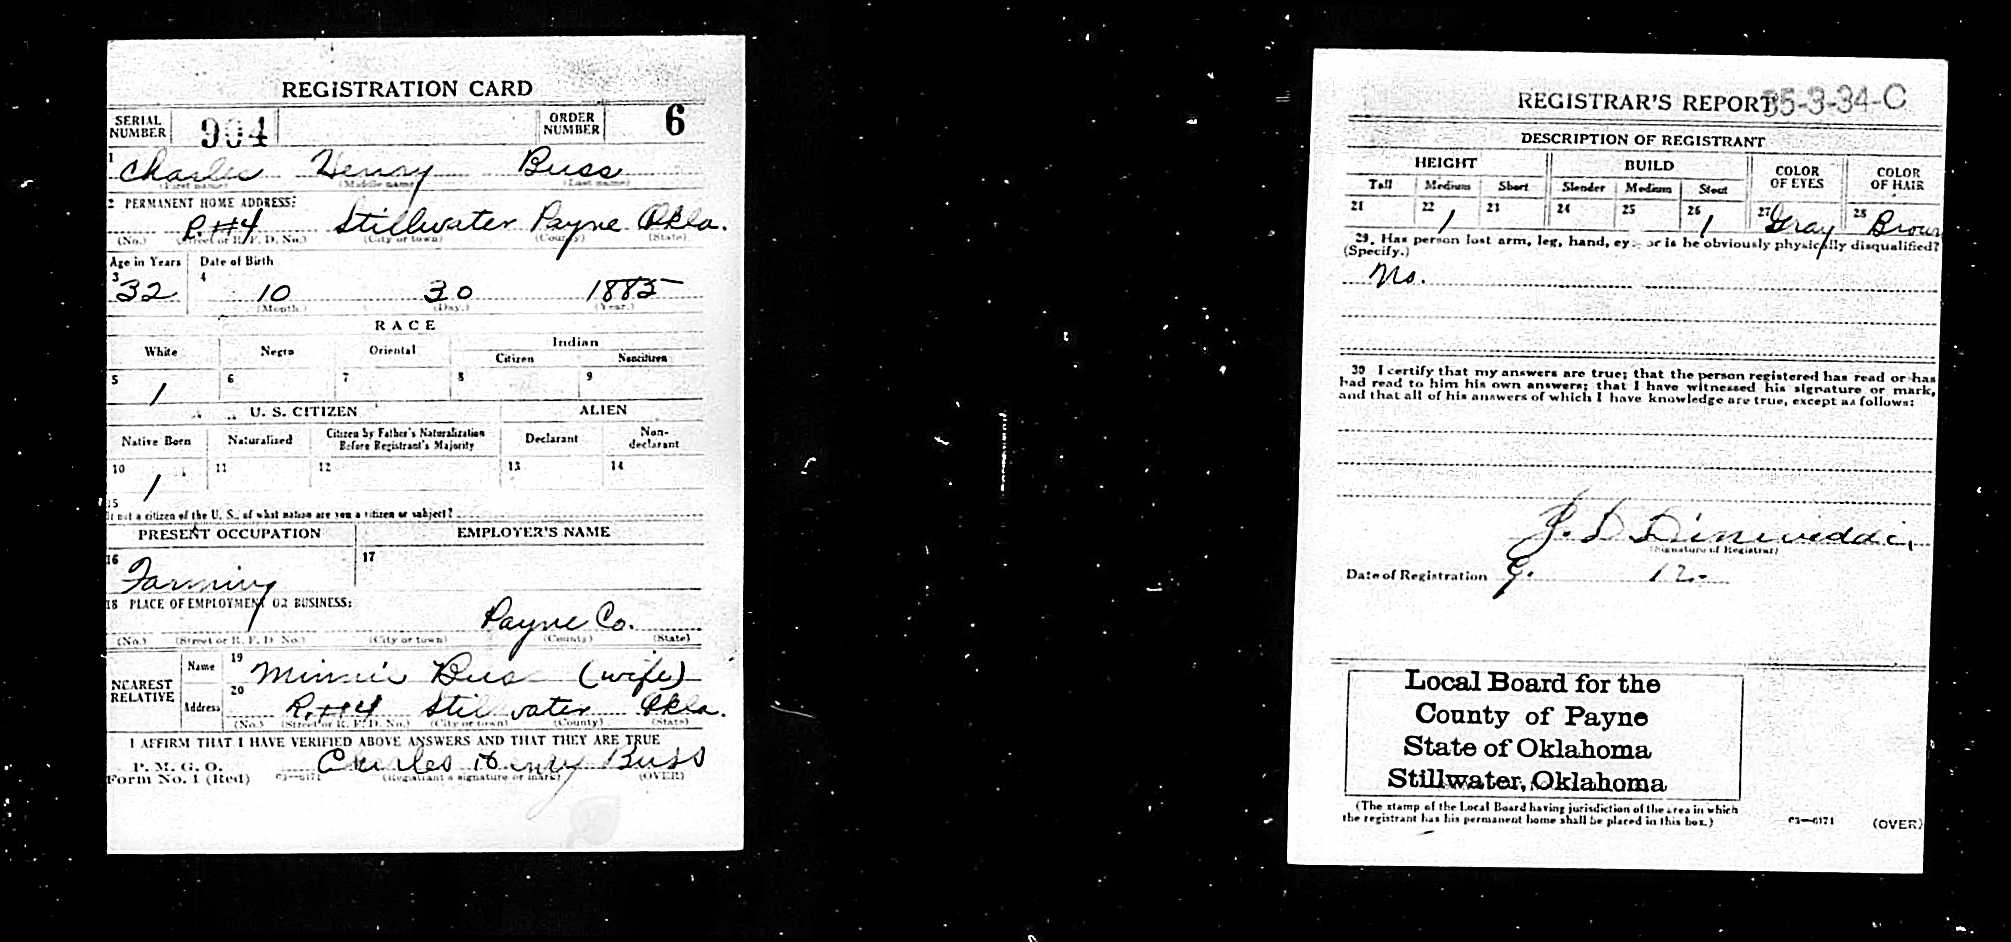 REGISTRATION CARD
SERIAL NUMBER 904 ORDER NUMBER 6
1 Charles Henry Buss
(First name) (Middle name) (Last name)
2 PERMANENT HOME ADDRESS:
R. #4 Stillwater Payne Okla.
(No.) (Street or R. F. D. No.) (City or town) (County) (State)
Age in Years Date of Birth
3 32 4 10 30 1885
(Month.) (Day.) (Year.)
RACE
White Negro Oriental Indian
Citizen Noncitizen
5 1 6 7 8 9
U. S. CITIZEN ALIEN
Native Born Naturalized Citizen by Father's Naturalization Before Registrant's Majority Declarant Non-declarant
10 1 11 12 13 14
15
If not a citizen of the U. S., of what nation are you a citizen or subject?
PRESENT OCCUPATION EMPLOYER'S NAME
16 Farming 17
18 PLACE OF EMPLOYMENT OR BUSINESS:
Payne Co.
(No.) (Street or R. F. D. No.) (City or town) (County) (State)
NEAREST RELATIVE
Name 19 Minnie Buss (wife)
Address 20 R. #4 Stillwater Okla.
(No.) (Street or R. F. D. No.) (City or town) (County) (State)
I AFFIRM THAT I HAVE VERIFIED ABOVE ANSWERS AND THAT THEY ARE TRUE
P. M. G. O.
Form No. 1 (Red) C3—6171 Charles Henry Buss
(Registrant's signature or mark) (OVER)
REGISTRAR'S REPORT 35-3-34-C
DESCRIPTION OF REGISTRANT
HEIGHT BUILD COLOR OF EYES COLOR OF HAIR
Tall Medium Short Slender Medium Stout
21 22 1 23 24 25 26 1 27 Gray 28 Brown
29. Has person lost arm, leg, hand, eye, or is he obviously physically disqualified?
(Specify.)
No.
30 I certify that my answers are true; that the person registered has read or has
had read to him his own answers; that I have witnessed his signature or mark,
and that all of his answers of which I have knowledge are true, except as follows:
J. D.
(Signature of Registrar)
Date of Registration 9. 12-
Local Board for the
County of Payne
State of Oklahoma
Stillwater, Oklahoma
(The stamp of the Local Board having jurisdiction of the area in which
the registrant has his permanent home shall be placed in this box.)
C3—6171 (OVER)